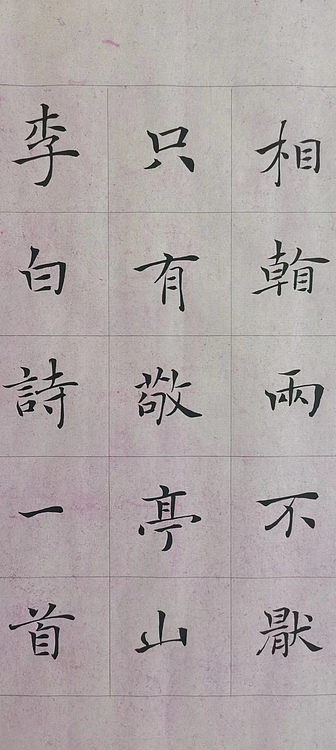 相看兩不猒
只有敬亭山
李白詩一首